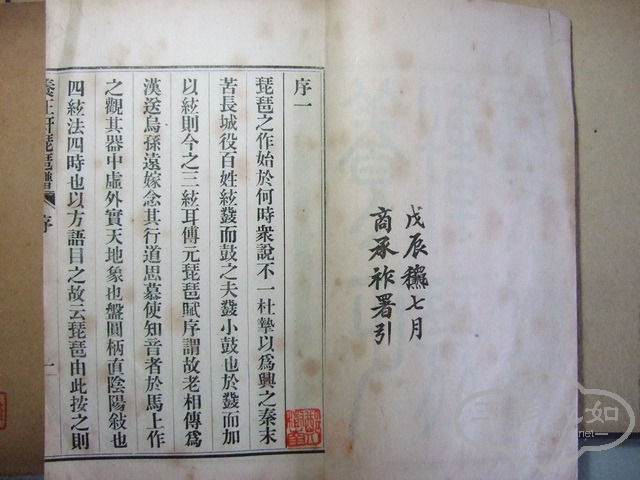 戊辰穐七月
商承祚署引
序一
琵琶之作始於何時衆說不一杜摯以爲興之秦末
苦長城役百姓絃鼗而鼓之夫鼗小鼓也於鼗而加
以絃則今之三絃耳傅元琵琶賦序謂故老相傳爲
漢送烏孫遠嫁念其行道思慕使知音者於馬上作
之觀其器中虛外實天地象也盤圓柄直陰陽敍也
四絃法四時也以方語目之故云琵琶由此按之則
養正軒琵琶譜 序 一